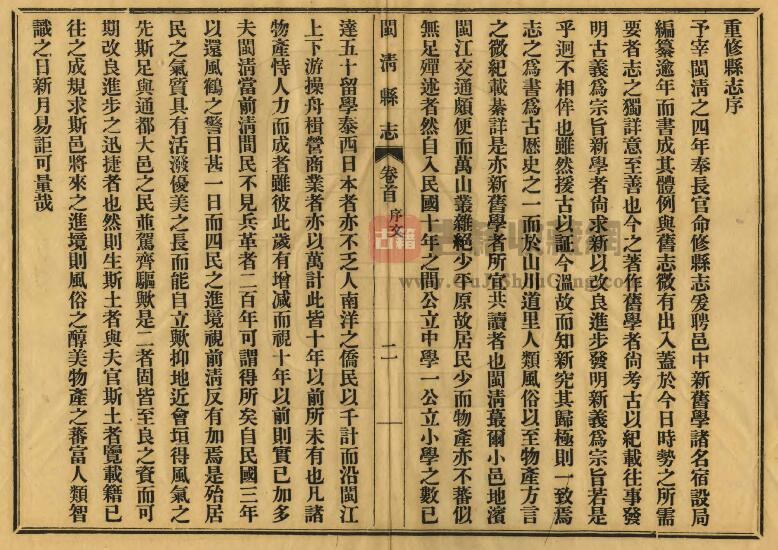 重修縣志序
予宰閩清之四年奉長官命修縣志爰聘邑中新舊學諸名宿設局
編纂逾年而書成其體例與舊志微有出入蓋於今日時勢之所需
要者志之獨詳意至善也今之著作舊學者尚考古以紀載往事發
明古義爲宗旨新學者尚求新以改良進步發明新義爲宗旨若是
乎迥不相侔也雖然援古以証今溫故而知新究其歸極則一致焉
志之爲書爲古歷史之一而於山川道里人類風俗以至物產方言
之微紀載綦詳是亦新舊學者所宜共讀者也閩清蕞爾小邑地濱
閩江交通頗便而萬山叢雜絕少平原故居民少而物產亦不蕃似
無足殫述者然自入民國十年之間公立中學一公立小學之數已
閩清縣志
卷首
序文
二
達五十留學泰西日本者亦不乏人南洋之僑民以千計而沿閩江
上下游操舟楫營商業者亦以萬計此皆十年以前所未有也凡諸
物產恃人力而成者雖彼此歲有增減而視十年以前則實已加多
夫閩清當前清間民不見兵革者二百年可謂得所矣自民國三年
以還風鶴之警日甚一日而四民之進境視前清反有加焉是殆居
民之氣質具有活潑優美之長而能自立歟抑地近會垣得風氣之
先斯足與通都大邑之民並駕齊驅歟是二者固皆至良之資而可
期改良進步之迅捷者也然則生斯土者與夫官斯土者覽載籍已
往之成規求斯邑將來之進境則風俗之醇美物產之蕃富人類智
識之日新月易詎可量哉
古籍
www.GuJiShouCang.com